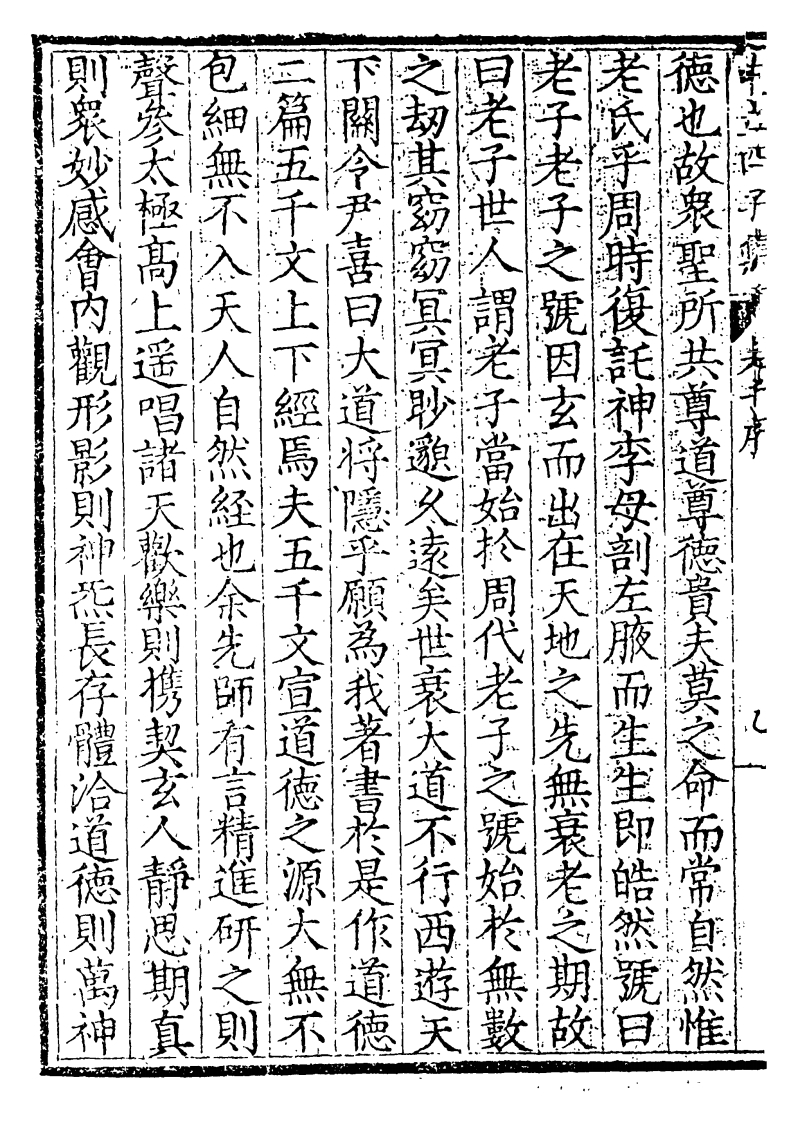 德也故衆聖所共尊道尊德貴夫莫之命而常自然惟
老氏乎周時復託神李母剖左腋而生生即皓然號曰
老子老子之號因玄而出在天地之先無衰老之期故
曰老子世人謂老子當始扵周代老子之號始扵無數
之刼其窈窈冥冥眇邈乆遠矣世衰大道不行西遊天
下關令尹喜曰大道将隱乎願為我著書扵是作道德
二篇五千文上下經焉夫五千文宣道德之源大無不
包細無不入天人自然経也余先師有言精進研之則
聲參太極髙上遥唱諸天歡樂則携契玄人靜思期真
則衆妙感會内觀形影則神炁長存體洽道德則萬神
子
老子序